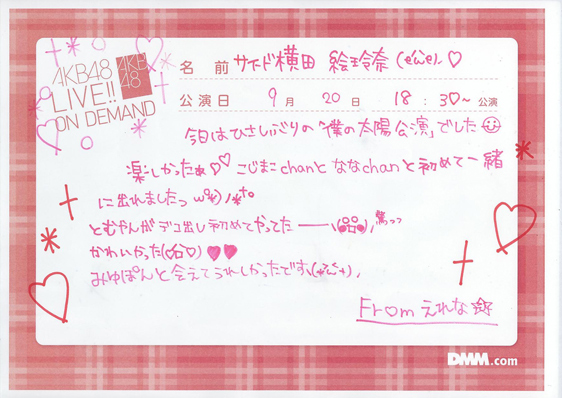 AKB48
LIVE!!
ON DEMAND
AKB
48
名 前 サイド横田 絵玲奈
公演日 9月 20日 18:30~ 公演
今日はひさしぶりの「僕の太陽公演」でした
楽しかったぁ♡♡ こじまこchanと ななchanと初めて一緒
に出れましたっ
ともやんがデコ出し初めてやってた
かわいかった ♥♥
みゆぽんと会えてうれしかったです
From えれな☆
DMM.com